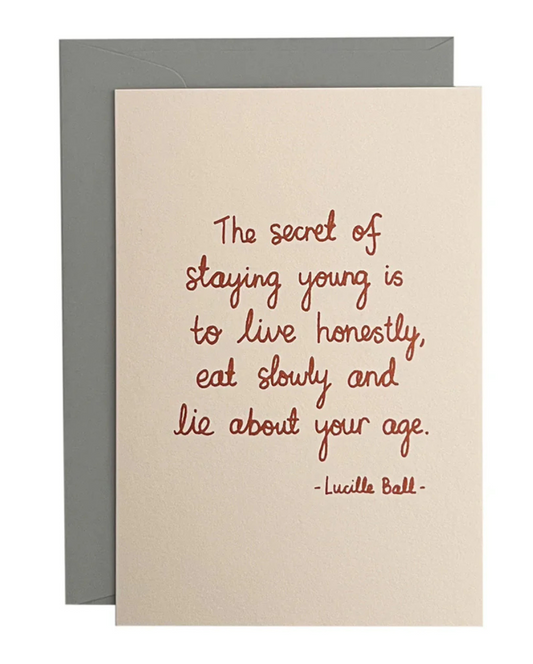 The secret of
staying young is
to live honestly,
eat slowly and
lie about your age.
-Lucille Ball-